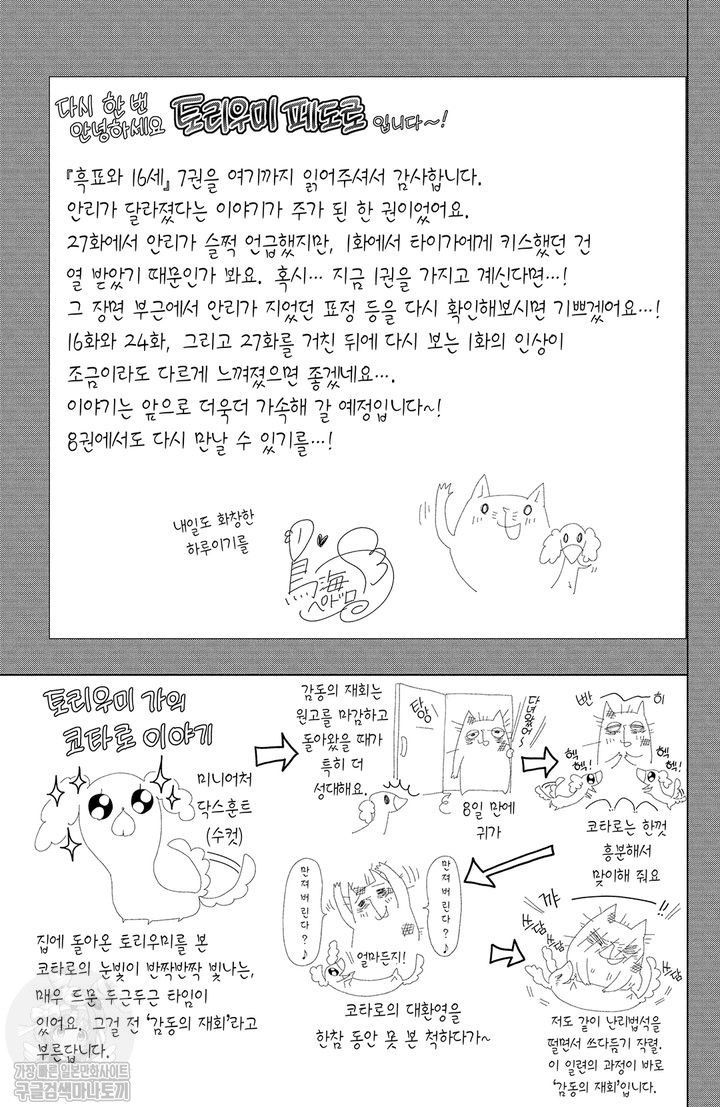 다시 한 번
안녕하세요 토리우미 페도로 입니다~!
『흑표와 16세』 7권을 여기까지 읽어주셔서 감사합니다.
안리가 달라졌다는 이야기가 주가 된 한 권이었어요.
27화에서 안리가 슬쩍 언급했지만, 1화에서 타이가에게 키스했던 건
열 받았기 때문인가 봐요. 혹시… 지금 1권을 가지고 계신다면…!
그 장면 부근에서 안리가 지었던 표정 등을 다시 확인해보시면 기쁘겠어요…!
16화와 24화, 그리고 27화를 거친 뒤에 다시 보는 1화의 인상이
조금이라도 다르게 느껴졌으면 좋겠네요….
이야기는 앞으로 더욱더 가속해 갈 예정입니다~!
8권에서도 다시 만날 수 있기를…!
내일도 화창한
하루이기를
鳥海
ペドロ
토리우미 가의
코타로 이야기
미니어처
닥스훈트
(수컷)
집에 돌아온 토리우미를 본
코타로의 눈빛이 반짝반짝 빛나는,
매우 드문 두근두근 타임이
있어요. 그걸 전 '감동의 재회'라고
부른답니다.
감동의 재회는
원고를 마감하고
돌아왔을 때가
특히 더
성대해요.
탕
다녀왔어~
8일 만에
귀가
빤 히
헥
헥!
헥
헥!
코타로는 한껏
흥분해서
맞이해 줘요
만져버린다?♪
만져버린다?♪
얼마든지!
코타로의 대환영을
한참 동안 못 본 척하다가~
꺄
!!
저도 같이 난리법석을
떨면서 쓰다듬기 작렬.
이 일련의 과정이 바로
'감동의 재회'입니다.
가장 빠른 일본만화사이트
구글검색마나토끼